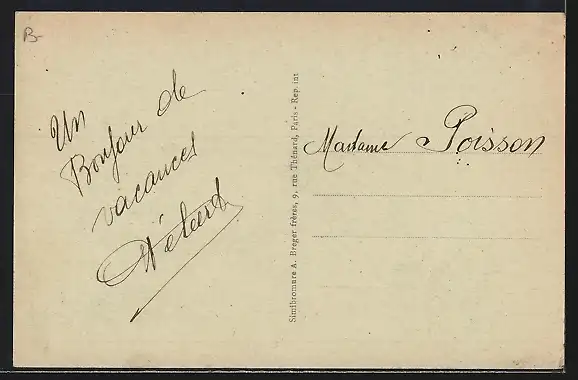 B-
Un
Bonjour de
vacances
Madame Poisson
Similibromure A. Breger frères, 9, rue Thénard, Paris - Rep. int